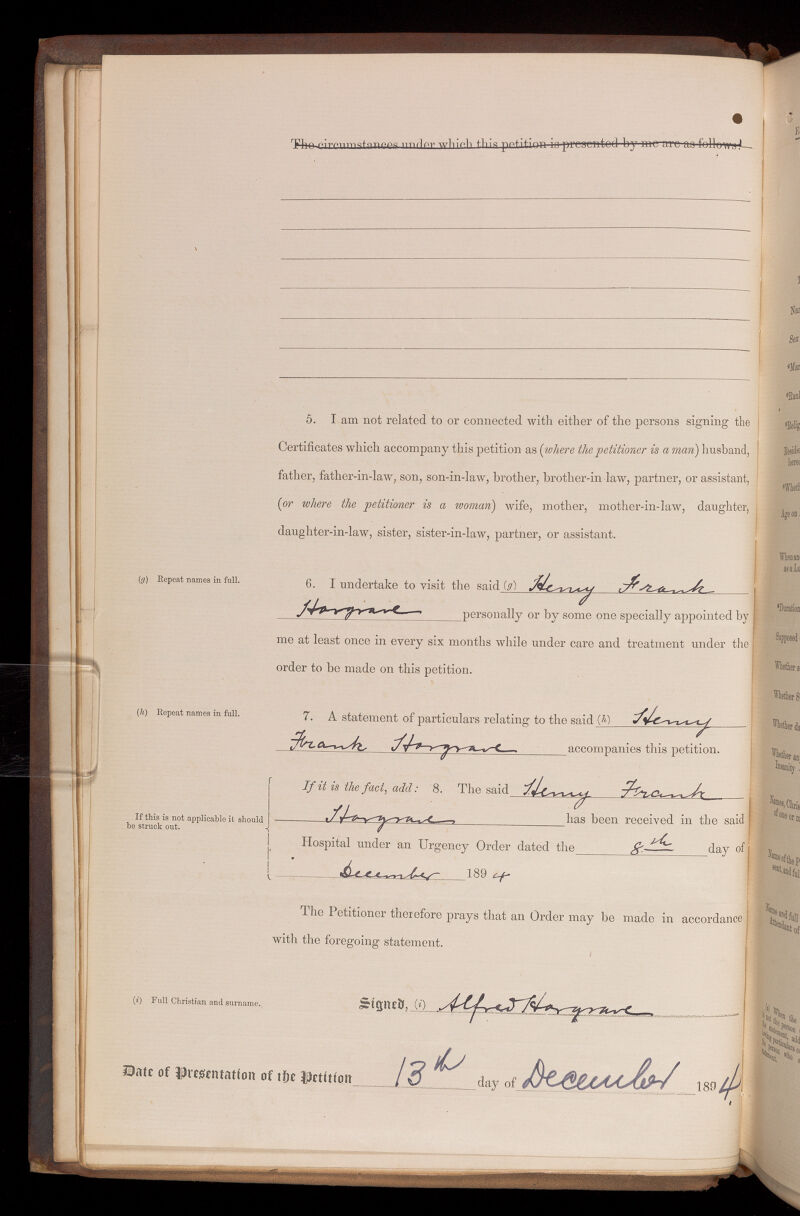 The circumstances under which this petition is presented by me are as follows:
5. I am not related to or connected with either of the persons signing the
Certificates which accompany this petition as (where the petitioner is a man) husband,
father, father-in-law, son, son-in-law, brother, brother-in law, partner, or assistant,
(or where the petitioner is a woman) wife, mother, mother-in-law, daughter,
daughter-in-law, sister, sister-in-law, partner, or assistant.
(g) Repeat names in full.
6. I undertake to visit the said (g) Henry Frank
Hargrave personally or by some one specially appointed by
me at least once in every six months while under care and treatment under the
order to be made on this petition.
(h) Repeat names in full.
7. A statement of particulars relating to the said (h) Henry
Frank Hargrave accompanies this petition.
If it is the fact, add: 8. The said Henry Frank
If this is not applicable it should
be struck out.
Hargrave has been received in the said
Hospital under an Urgency Order dated the 8th day of
December 1894
The Petitioner therefore prays that an Order may be made in accordance
with the foregoing statement.
(i) Full Christian and surname.
Signed, (i) Alfred Hargrave
Date of Presentation of the Petition 13th day of December 1894.